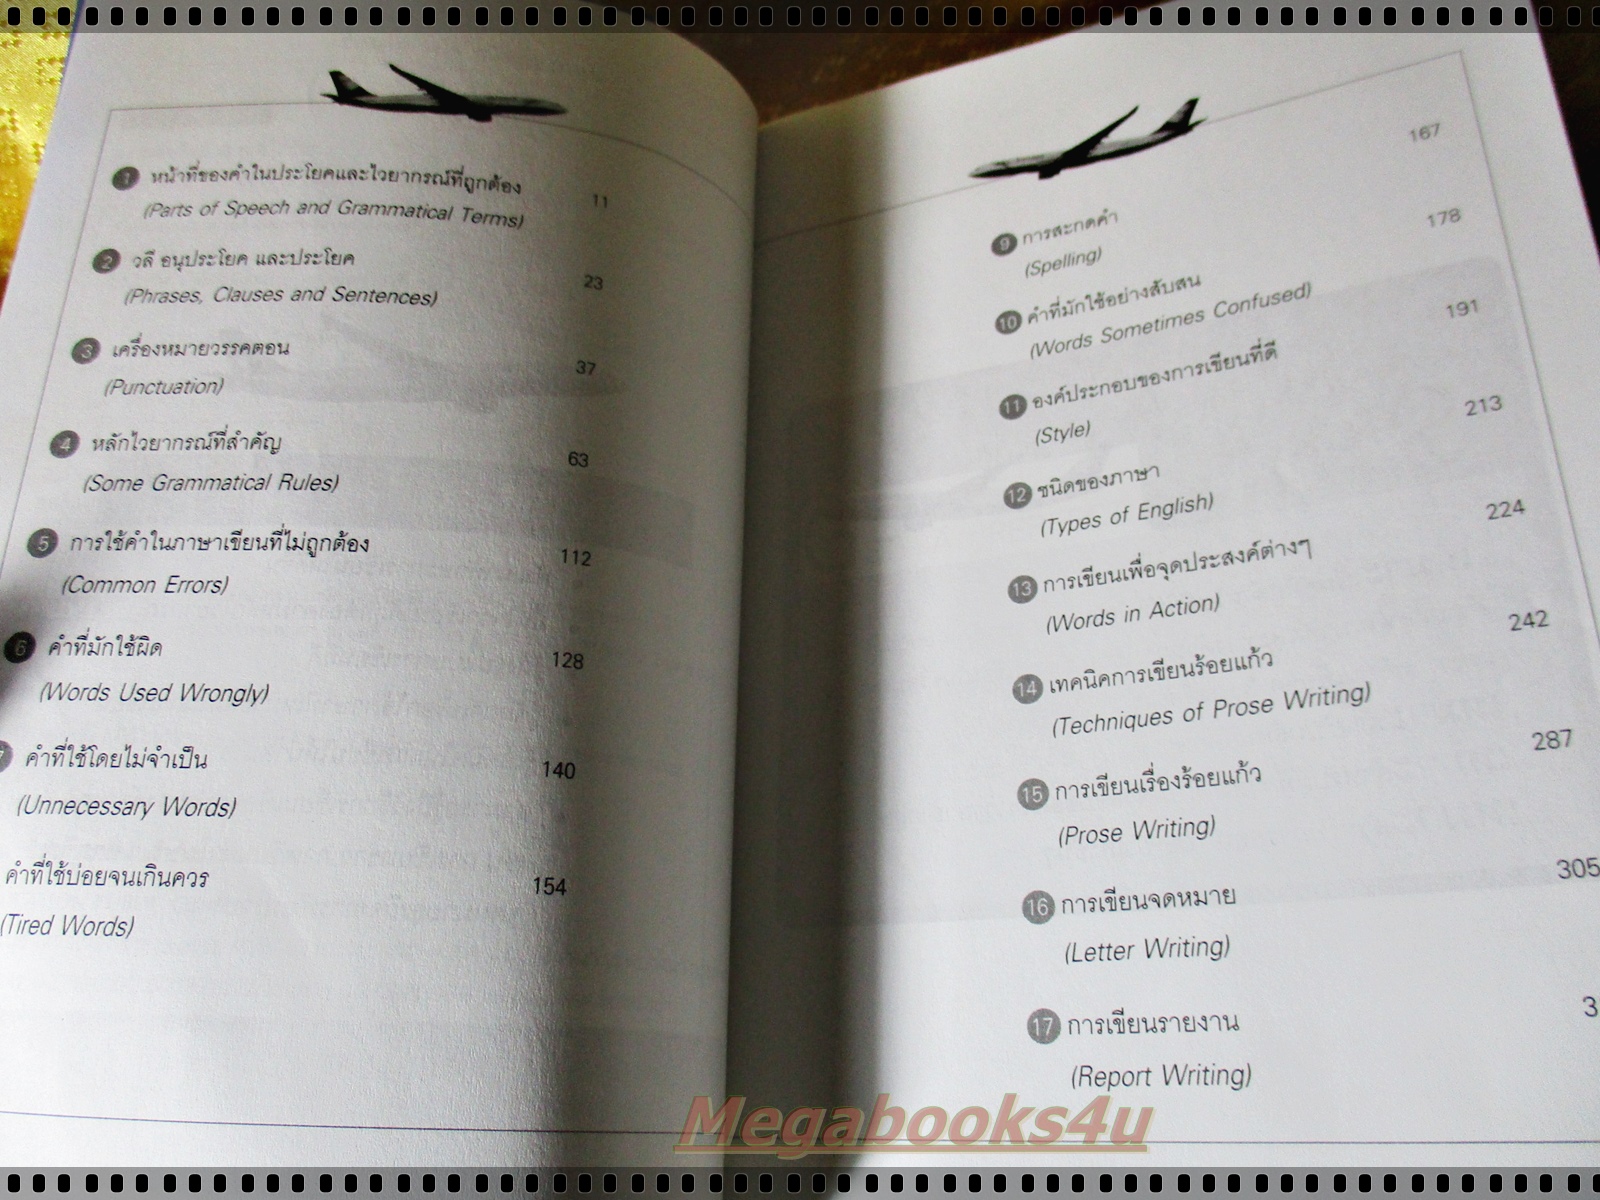 1 หน้าที่ของคำในประโยคและไวยากรณ์ที่ถูกต้อง 11
(Parts of Speech and Grammatical Terms)
2 วลี อนุประโยค และประโยค 23
(Phrases, Clauses and Sentences)
3 เครื่องหมายวรรคตอน 37
(Punctuation)
4 หลักไวยากรณ์ที่สำคัญ 63
(Some Grammatical Rules)
5 การใช้คำในภาษาเขียนที่ไม่ถูกต้อง 112
(Common Errors)
6 คำที่มักใช้ผิด 128
(Words Used Wrongly)
7 คำที่ใช้โดยไม่จำเป็น 140
(Unnecessary Words)
คำที่ใช้บ่อยจนเกินควร 154
(Tired Words)
9 การสะกดคำ 167
(Spelling)
10 คำที่มักใช้อย่างสับสน 178
(Words Sometimes Confused)
11 องค์ประกอบของการเขียนที่ดี 191
(Style)
12 ชนิดของภาษา 213
(Types of English)
13 การเขียนเพื่อจุดประสงค์ต่างๆ 224
(Words in Action)
14 เทคนิคการเขียนร้อยแก้ว 242
(Techniques of Prose Writing)
15 การเขียนเรื่องร้อยแก้ว 287
(Prose Writing)
16 การเขียนจดหมาย 305
(Letter Writing)
17 การเขียนรายงาน 3
(Report Writing)
Megabooks4u